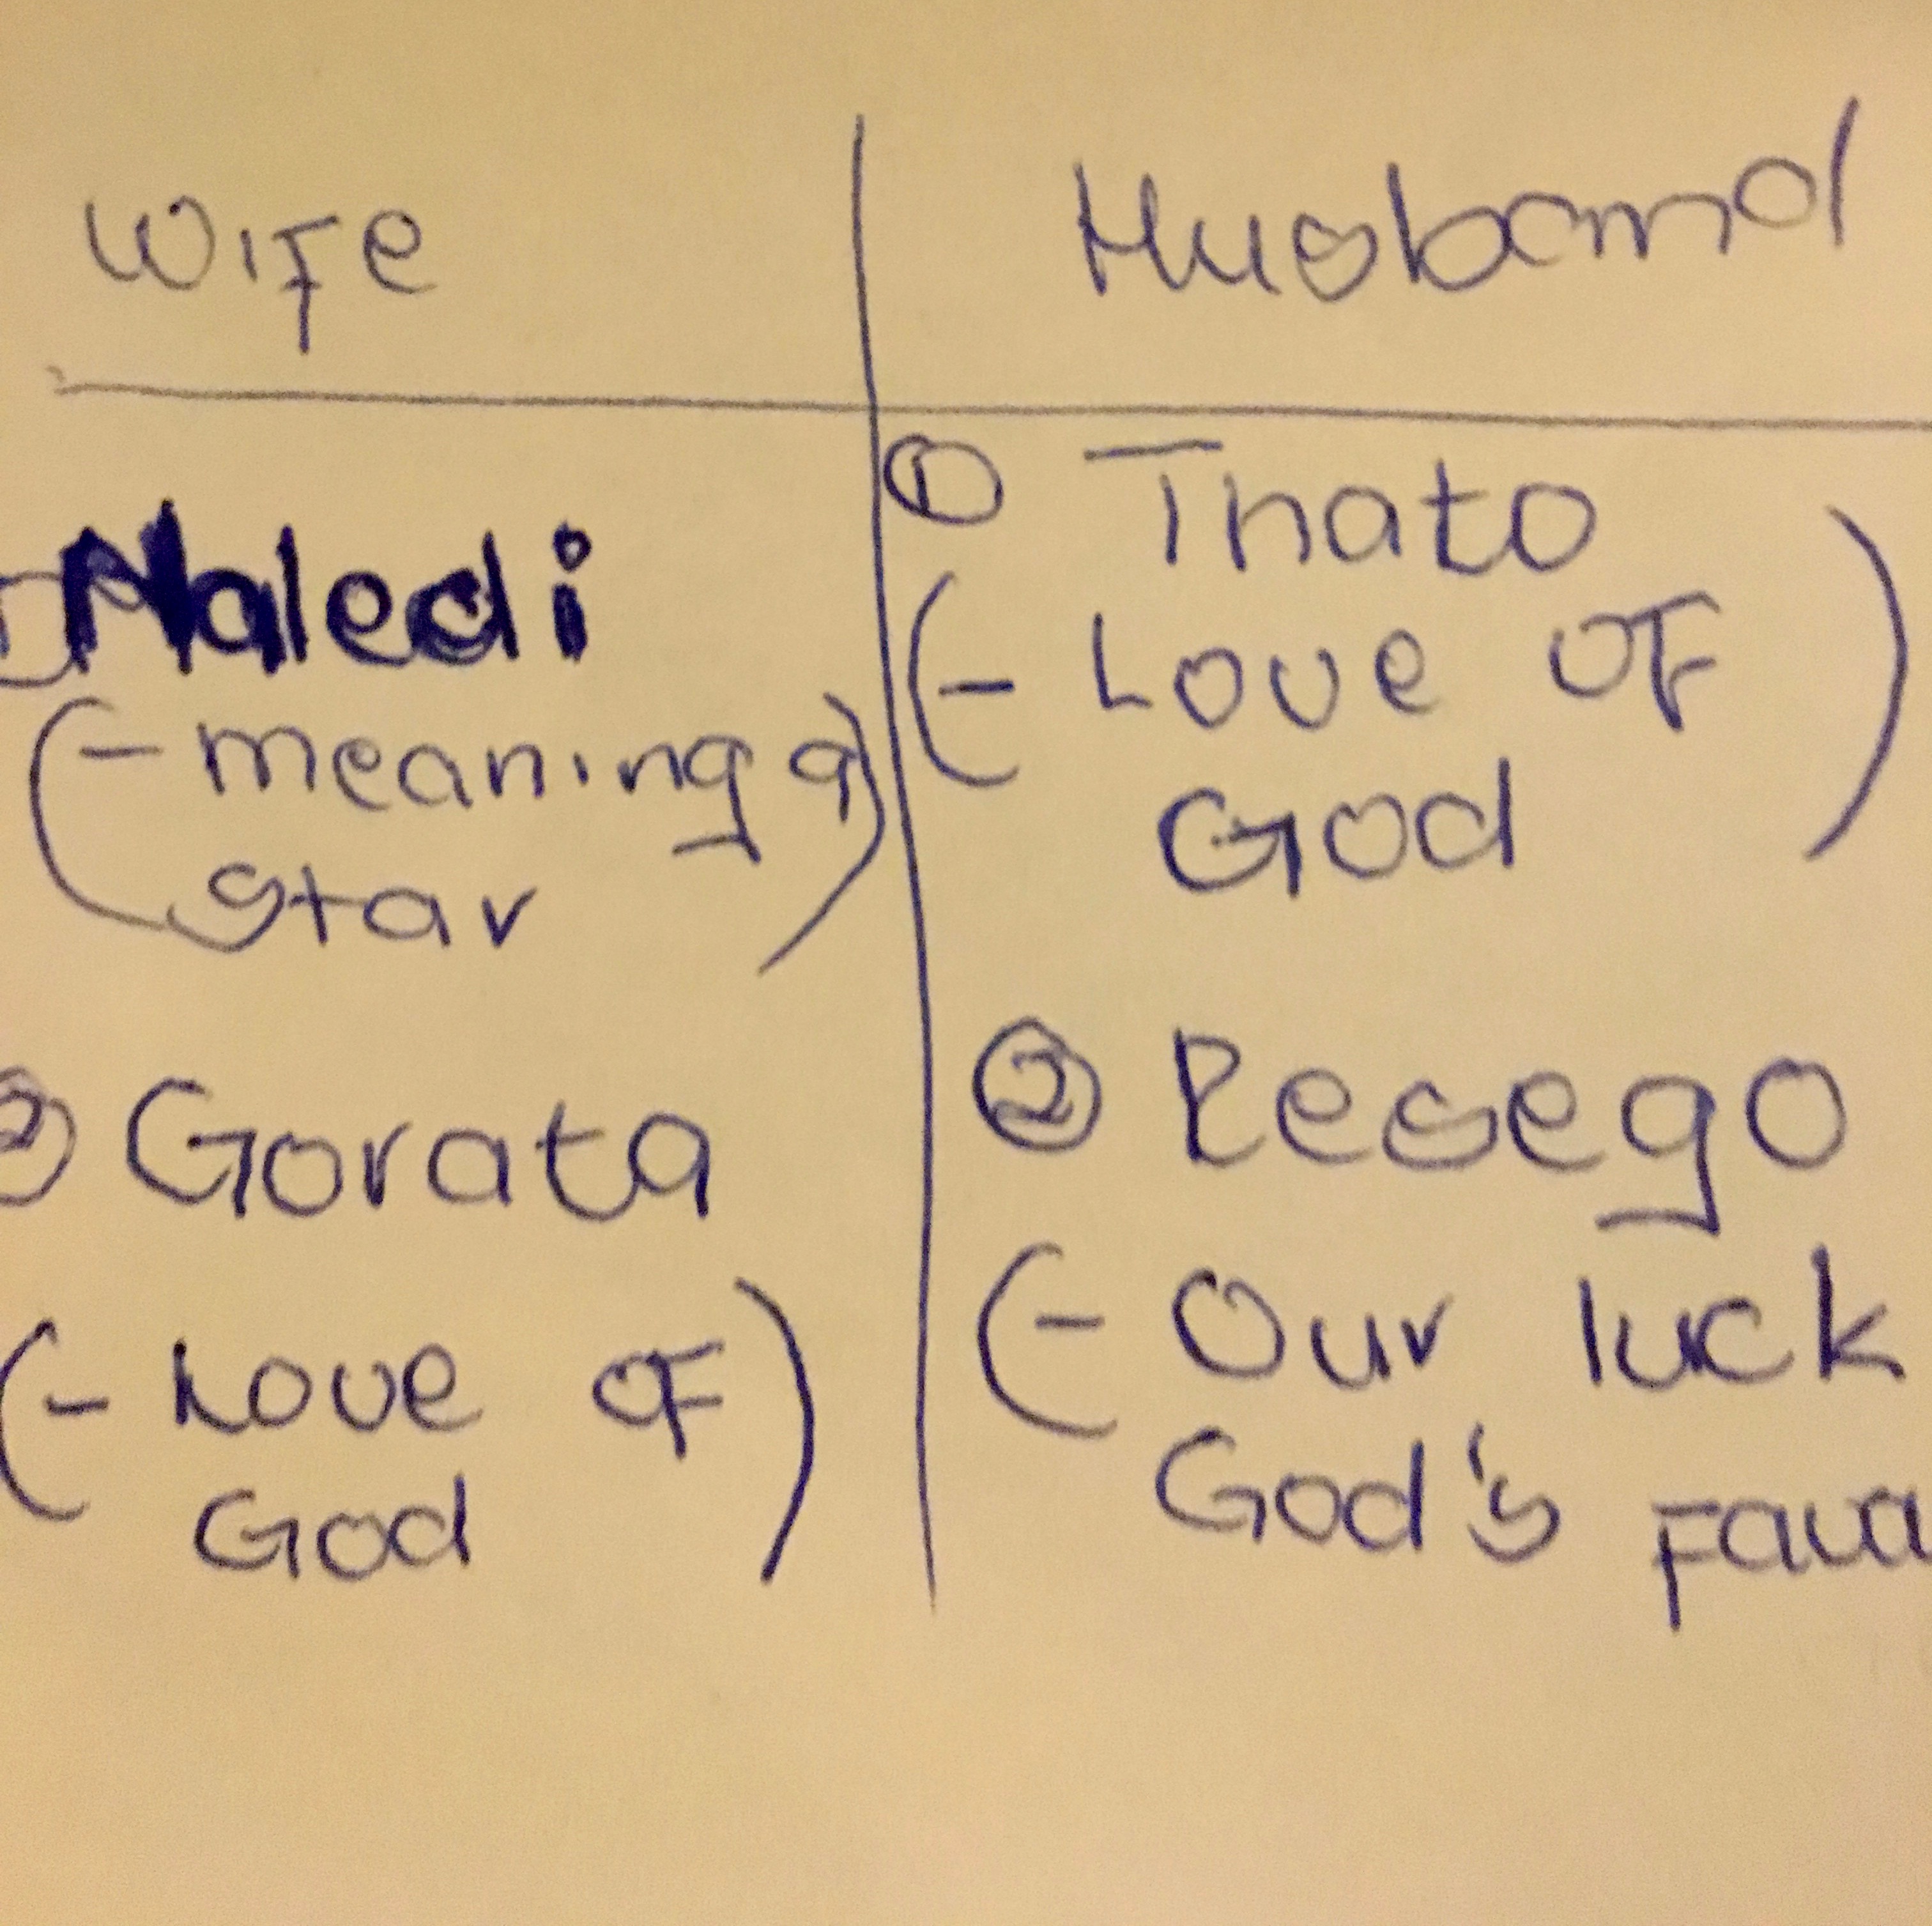 Wife
Naledi
(- meaning a)
star
② Gorata
(- Love OF)
God
Husband
① Thato
(- Love OF)
God
② Lesego
(- Our luck
God's Fava